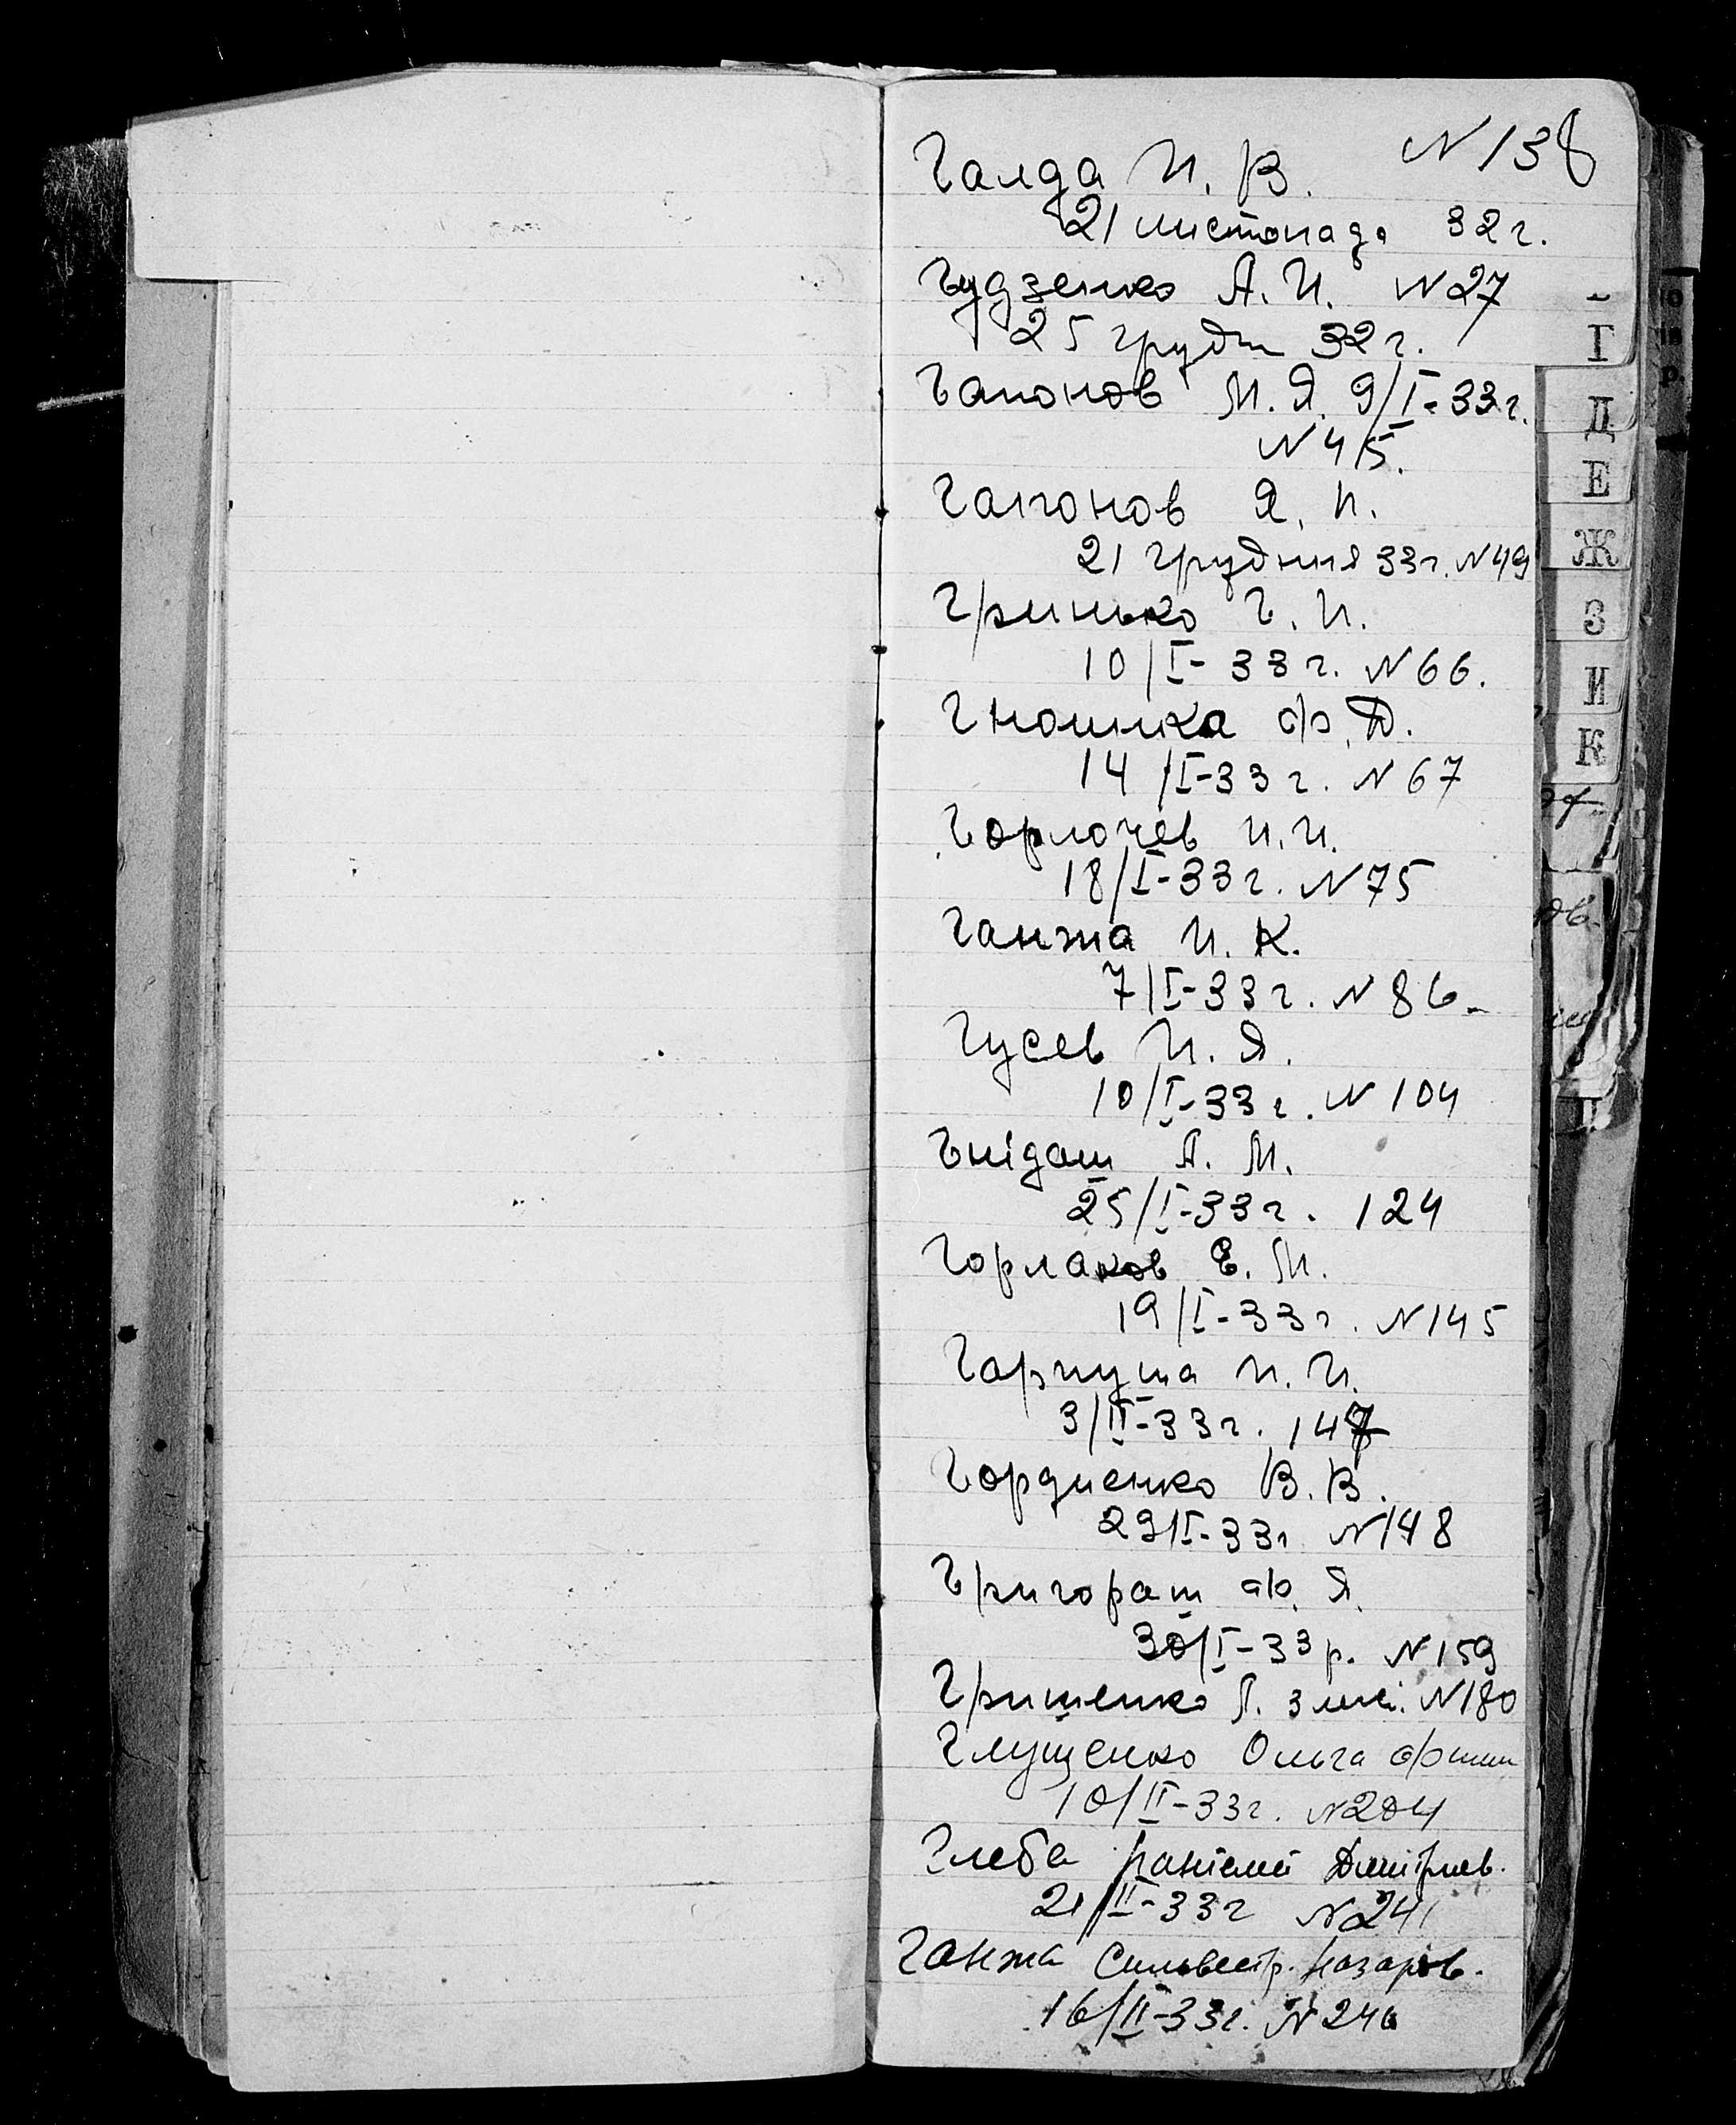 Галда И. В. N 138
21 листопада 32 г.
Гудзенко А. И. N 27
25 грудн 32 г.
Гапонов М. Я. 9/I-33г.
N 45.
Гапонов Я. И.
21 грудння 33г. N 49
Гринько Г. И.
10/I-33 г. N 66.
Гношка Ф. Д.
14/I-33 г. N 67
Горлочев И. И.
18/I-33 г. N 75
Ганжа И. К.
7/I-33 г. N 86.
Гусев И. Я.
10/I-33 г. N 104
Гнідаш А. М.
25/I-33 г. 124
Горлаков Е. М.
19/I-33 г. N 145
Гарпуша И. И.
3/II-33 г. 147
Гордиенко В. В.
29/I-33г. N 148
Григораш Ф. Я.
30/I-33 р. N 159
Грищенко А. N 180
Глущенко Ольга
10/II-33г. N 204
Глеба Дмитриев.
21/II-33г N 241
Ганжа Сильвестр. Назаров.
16/II-33г. N 246
Г
Д
Е
Ж
З
И
К